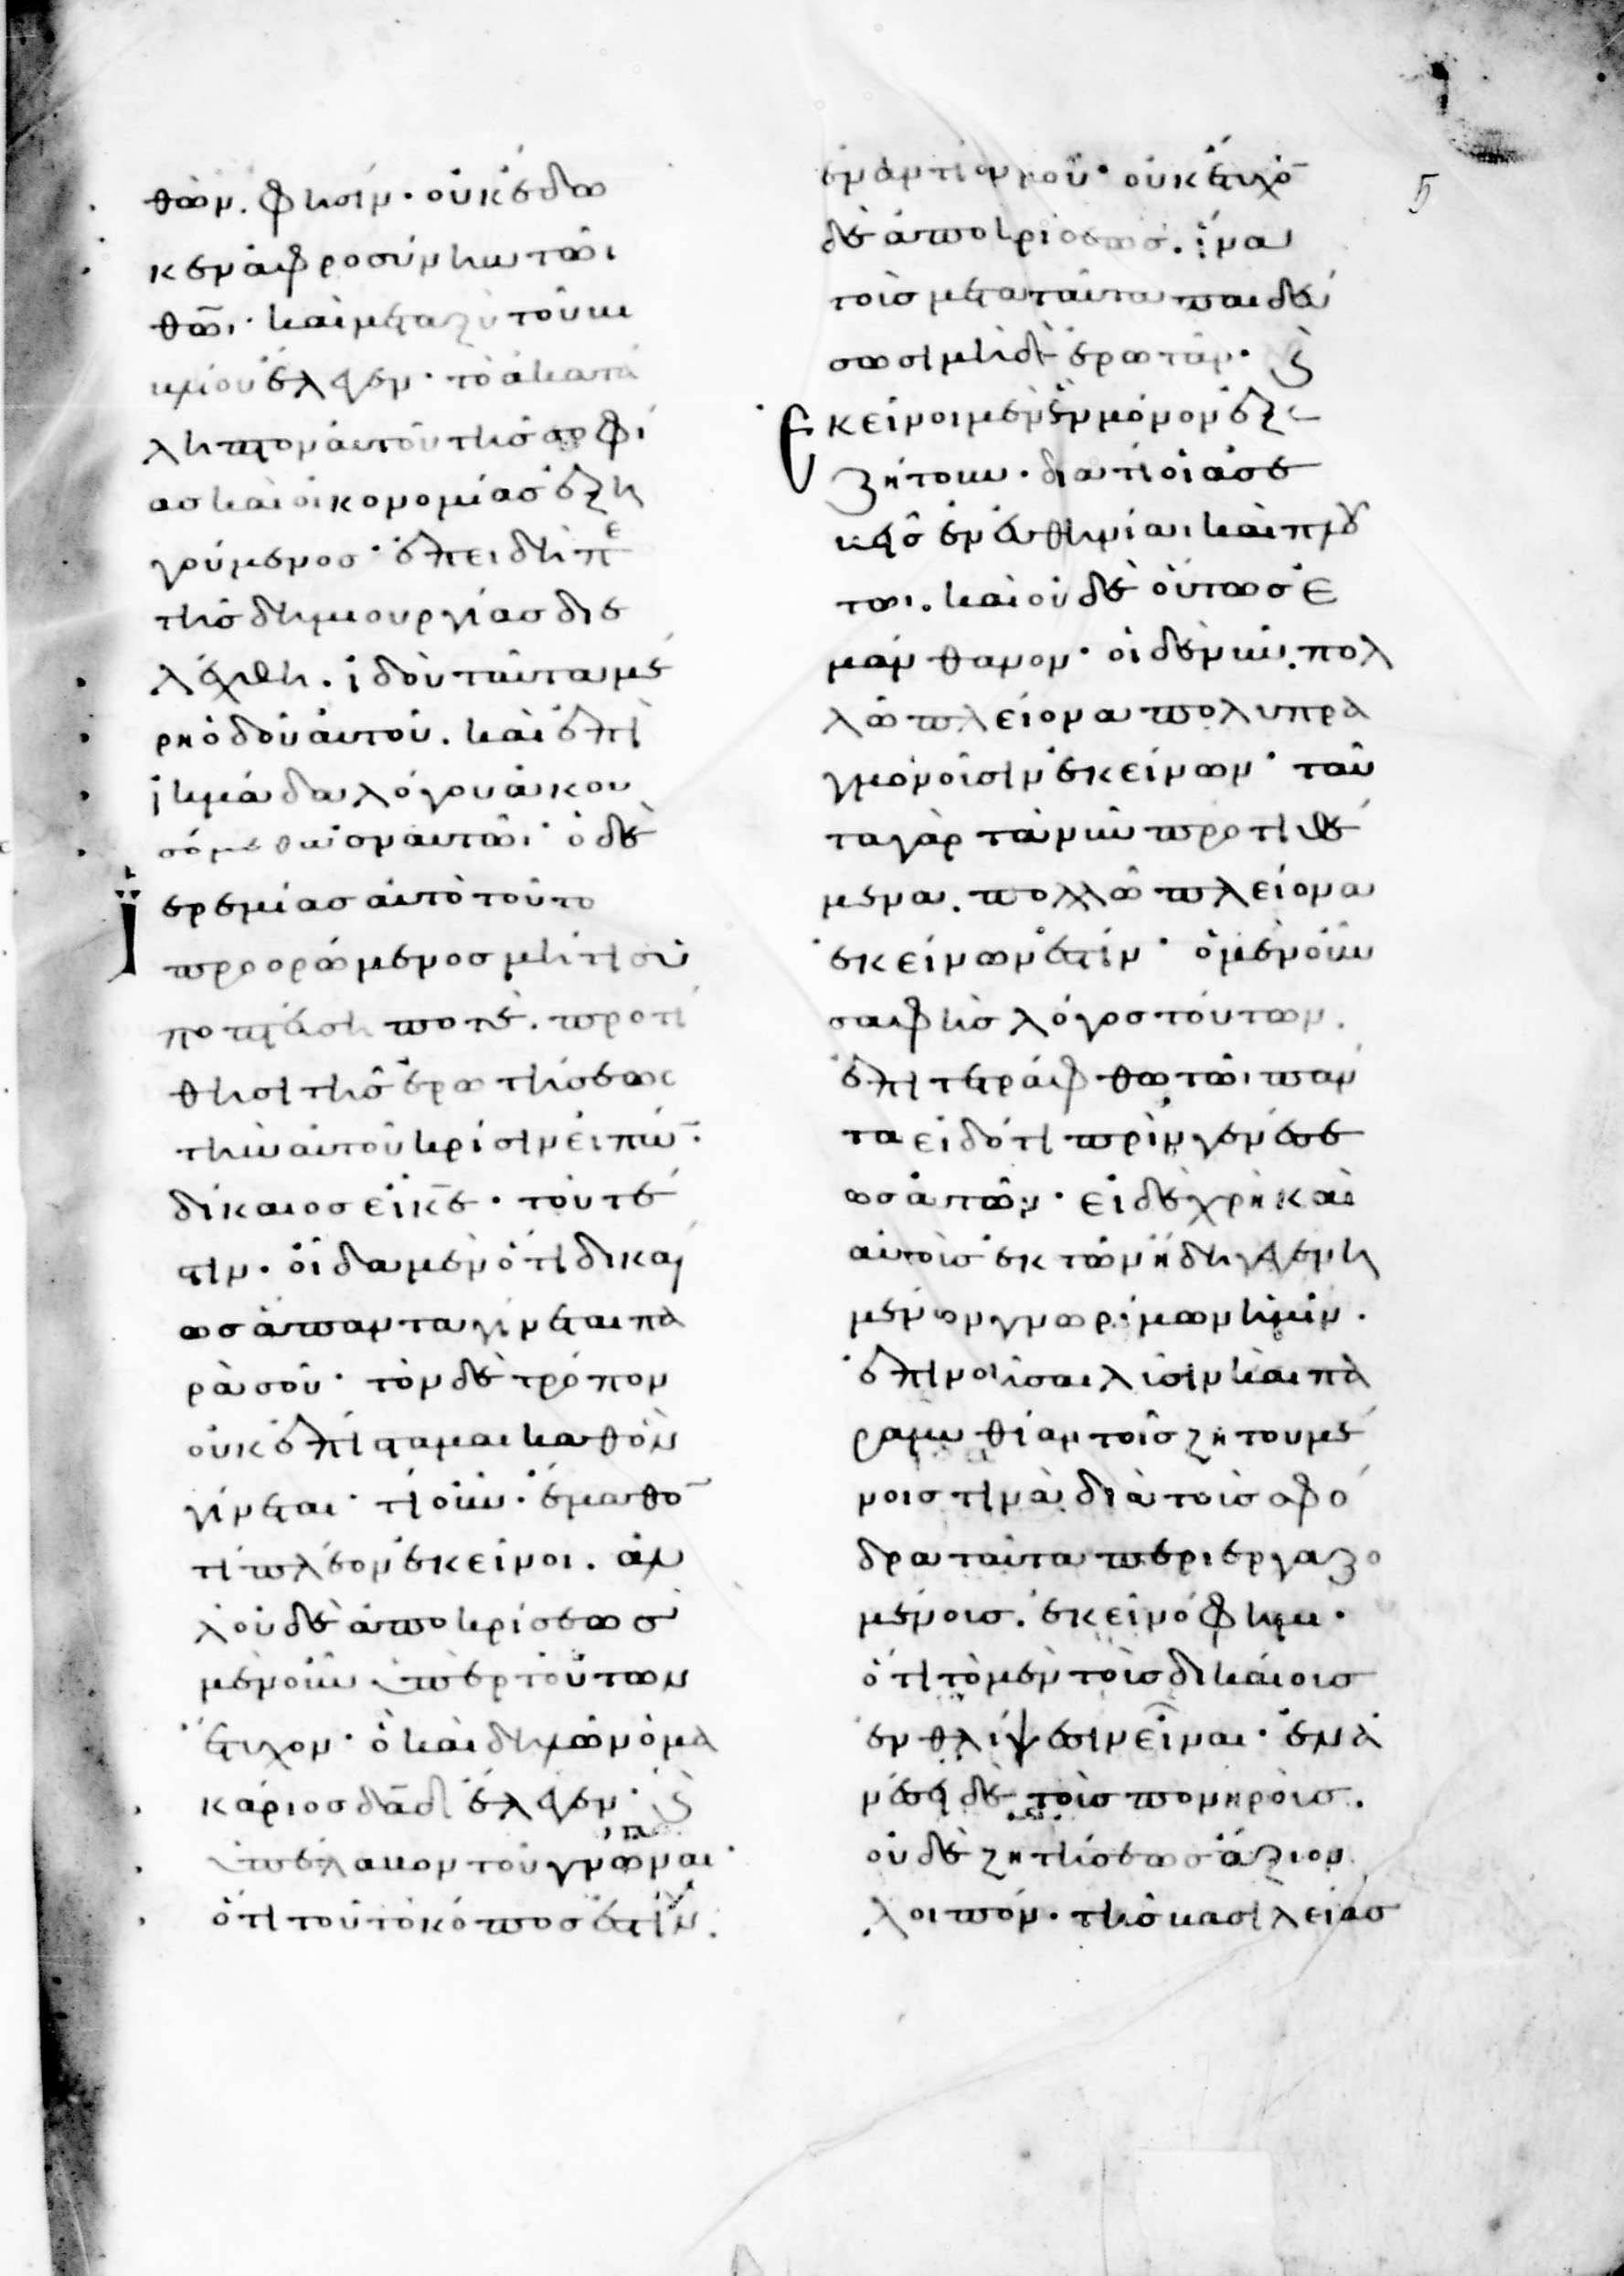 θῶν. φησίν· οὐκ ἔδω
κεν ἀφροσύνην τῶι
θω̄ι· καὶ μεταξὺ τοῦ βι
βλίου ἔλεγεν· τὸ ἀκατά
ληπτον αὐτοῦ τῆς σοφί
ας καὶ οἰκονομίας ἐξη
γούμενος· ἐπειδὴ πε
τῆς δημιουργίας διε
λέχθη. ἰδοὺ ταῦτα μέ
ρη ὁδοῦ αὐτοῦ. καὶ ἐπὶ
ἰκμάδα λόγου ἀκου
σόμεθα ἐν αὐτῶι· ὁ δὲ
Ϊερεμίας αὐτὸ τοῦτο
προορώμενος μή τισ ὑ
ποπτεύση ποτέ. προτί
θησι τῆς ἐρωτήσεως
τὴν αὐτοῦ κρίσιν εἰπών·
δίκαιος εἶ κ̄ε· τουτέ
στιν· οἶδα μὲν ὅτι δικαί
ως ἅπαντα γίνεται πα
ρὰ σοῦ· τὸν δὲ τρόπον
οὐκ ἐπίσταμαι καθ ὃν
γίνεται· τί οὖν· ἔμαθο̄
τὶ πλέον ἐκεῖνοι. ἀλ
λ οὐδὲ ἀποκρίσεως
μὲν οὖν ὑπὲρ τούτων
ἔτυχον· ὃ καὶ δηλῶν ὁ μα
κάριος δᾱδ ἔλεγεν· ϛ
ὑπέλαβον τοῦ γνῶναι·
ὅτι τοῦτο κόπος ἐστὶν.
5
ἐναντίον μου· οὐκ ἔτυχο̄
δὲ ἀποκρίσεως. ἵνα
τοῖς μετὰ ταῦτα παιδεύ
σωσι μηδὲ ἐρωτᾶν· ϛ
Εκεῖνοι μὲν ἓν μόνον ἐζε
ζήτουν. διατί οἱ ἀσε
βεῖς ἐν εὐθηνίαι καὶ πλού
τωι. καὶ οὐδὲ οὕτως ἐ
μάνθανον· οἱ δὲ νῦν. πολ
λῶ πλείονα πολυπρα
γμονοῦσιν ἐκείνων· ταῦ
τα γὰρ τὰ νῦν προτιθέ
μενα. πολλῶ πλείονα
ἐκείνων ἐστίν· ὁ μὲν οὖν
σαφὴς λόγος τούτων.
ἐπιτετράφθω τῶι πάν
τα εἰδότι πρὶν γενέσε
ως αὐτῶν· εἰ δὲ χρὴ καὶ
αὐτοῖς ἐκ τῶν ἤδη γεγενη
μένων γνωρίμων ἡμῖν.
ἐπινοῆσαι λύσιν καὶ πα
ραμυθίαν τοῖς ζητουμέ
νοις τινὰ διὰ τοὺς σφό
δρα ταῦτα περιεργαζο
μένους. ἐκεῖνό φημι·
ὅτι τὸ μὲν τοὺς δικαίους
ἐν θλίψεσιν εἶναι· ἐν ἀ
νέσει δὲ τοὺς πονηρούς.
οὐδὲ ζητήσεως ἄξιον
λοιπόν. τῆς βασιλείας